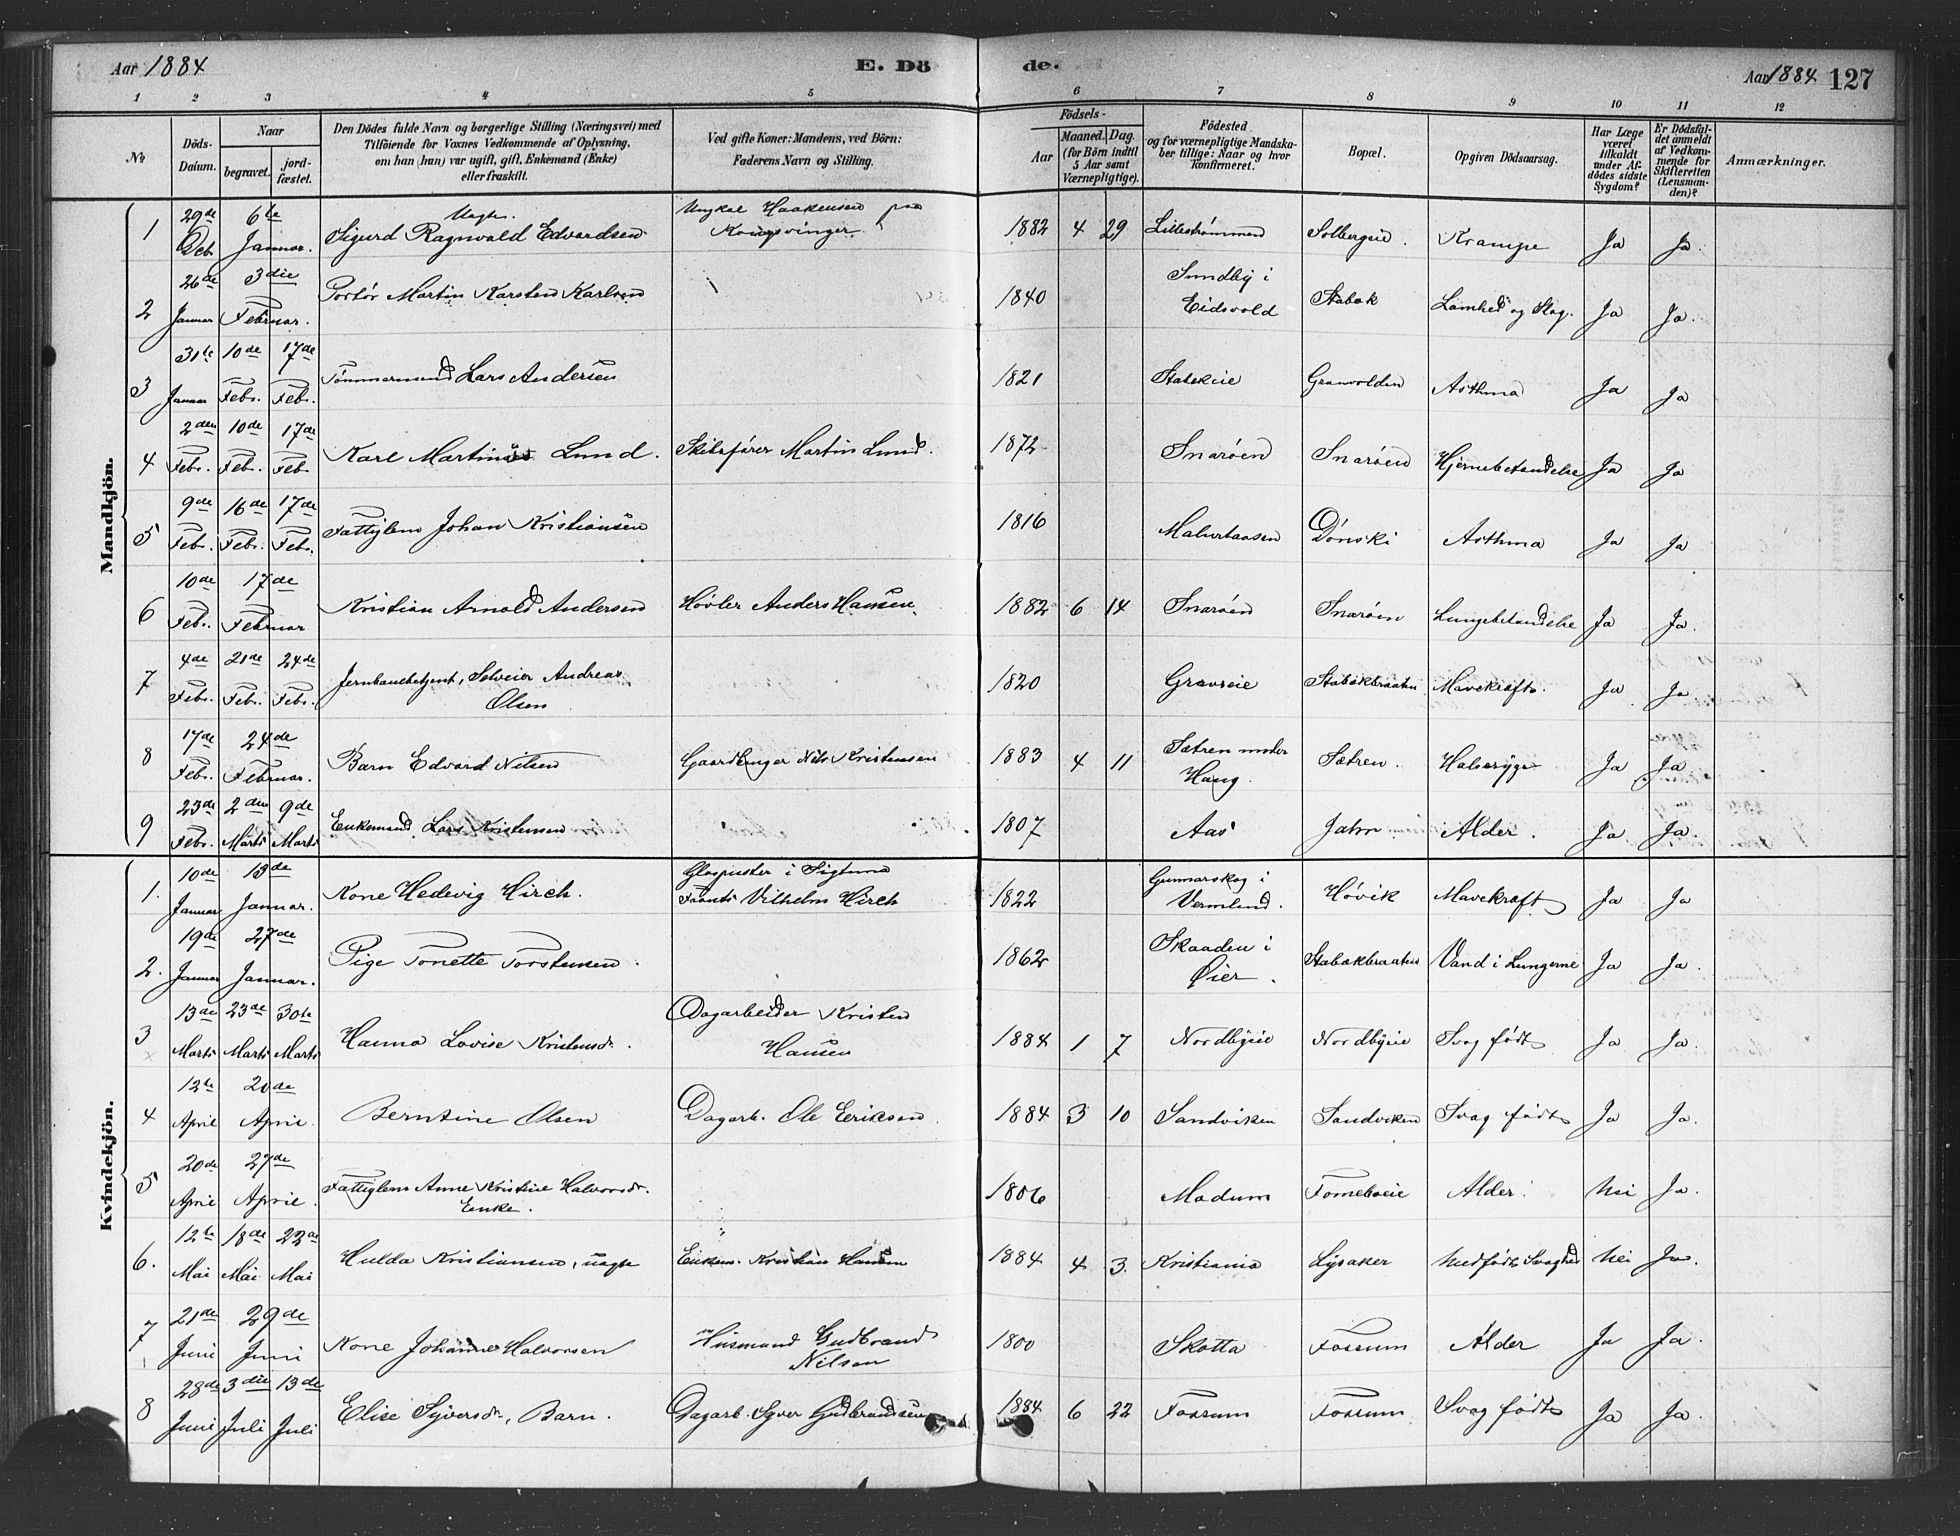 Aar 1884 E. Dö de. Aar 1884 127
1 2 3 4 5 6 7 8 9 10 11 12
No
Döds-Datum.
Naar
begravet.
jord-fæstet.
Den Dödes fulde Navn og borgerlige Stilling (Næringsvei) med
Tilföiende for Voxnes Vedkommende af Oplysning,
om han (hun) var ugift, gift, Enkemand (Enke)
eller fraskilt.
Ved gifte Koner: Mandens, ved Börn:
Faderens Navn og Stilling.
Födsels-
Aar
Maaned. Dag.
(for Börn indtil
5 Aar samt
Værnepligtige).
Födested
og for værnepligtige Mandska-
ber tillige: Naar og hvor
konfirmeret.
Bopæl.
Opgiven Dödsaarsag.
Har Læge
været
tilkaldt
under Af-
dödes sidste
Sygdom?
Er Dödsfal-
det anmeldt
af Vedkom-
mende for
Skifteretten
(Lensman-
den)?
Anmærkninger.
Mandkjön.
1 29de Deb. 6te Januar. Uægte. Sigurd Ragnvald Edvardsen Ungkal Haakensen paa Kongsvinger. 1882 4 29 Lillestrømmen Solbergeie. Krampe Ja Ja
2 26de Januar 3die Februar. Portør Martin Karsten Karlsen 1840 Sundby i Eidsvold Stabæk Lamhed og Slag. Ja Ja.
3 31te Januar 10de Febr. 17de Febr. Tømmermand Lars Andersen 1821 Stabækeie Granvolden Asthma Ja Ja
4 2den Febr. 10de Febr. 17de Feb. Karl Martinus Lund. Skibsfører Martin Lund. 1872 Snarøen Snarøen Hjernebetændelse Ja Ja
5 9de Febr. 16de Febr. 17de Febr. Fattiglem Johan Kristiansen 1816 Dønski Asthma Ja Ja
6 10de Febr. 17de Februar Kristian Arnold Andersen Høvler Anders Hansen. 1882 6 14 Snarøen Snarøen Lungebetændelse Ja Ja.
7 4de Febr. 21de Febr. 24de Febr. Jernbanebetjent, Selveier Andreas Olsen 1820 Gravseie Stabækbraaten Mavekræft. Ja Ja
8 17de Febr. 24de Februar. Barn Edvard Nilsen Gaardbruger Nils Kristensen 1883 4 11 Sætren under Haug. Sætren. Halssyge Ja Ja
9 23de Febr. 2den Marts 9de Marts Enkemand Lars Kristensen 1807 Aas Jahr Alder. Ja Ja.
Kvindekjön.
1. 10de Januar 13de Januar. Kone Hedevig Hirch. Glaspuster i Sigtuna Frants Vilhelm Hirch 1822 Gunnarskog i Vermland. Høvik Mavekræft Ja Ja
2. 19de Januar 27de Januar. Pige Tonette Torstensen. 1862 Skaaden i Øier. Stabækbraaten Vand i Lungerne Ja Ja.
3 13de Marts 23de Marts 30te Marts Hanna Lovise Kristensdr. Dagarbeider Kristen Hansen 1884 1 7 Nordbyeie Nordbyeie Svag født Ja Ja.
4 12te April 20de April. Berntine Olsen Dagarb. Ole Eriksen. 1884 3 10 Sandviken Sandviken Svag født Ja Ja.
5 20de April 27de April. Fattiglem Anne Kristine Halvorsdr. Enke. 1806 Modum Forneboeie Alder. Nei Ja.
6. 12te Mai 18de Mai 22de Mai Hulda Kristiansen, uægte Enkem. Kristian Hansen 1884 4 3. Kristiania Lysaker Medfødt Svaghed Nei Ja.
7 21de Juni 29de Juni Kone Johanne Halvorsen Husmand Gudbrand Nilsen 1800 Skotta Fossum Alder Ja Ja.
8 28de Juni 3die Juli 13de Juli Elise Syversdr, Barn. Dagarb. Syver Gudbrandsen 1884 6 22 Fossum Fossum Svag født Ja Ja.